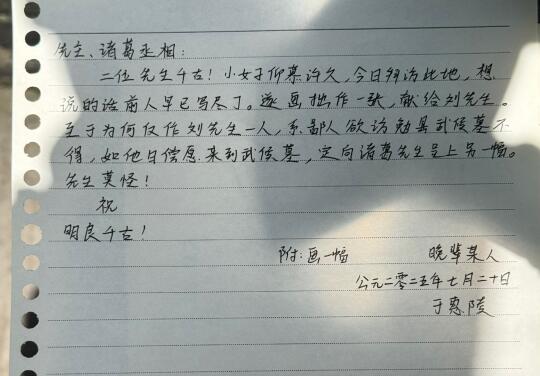 先主、诸葛丞相：
二位先生千古！小女子仰慕许久，今日拜访此地，想
说的话前人早已写尽了。遂画拙作一张，献给刘先生。
至于为何仅作刘先生一人，系鄙人欲访勉县武侯墓不
得，如他日偿愿来到武侯墓，定向诸葛先生呈上另一幅。
先生莫怪！
祝
明良千古！
附：画一幅 晚辈某人
公元二零二五年七月二十日
于惠陵